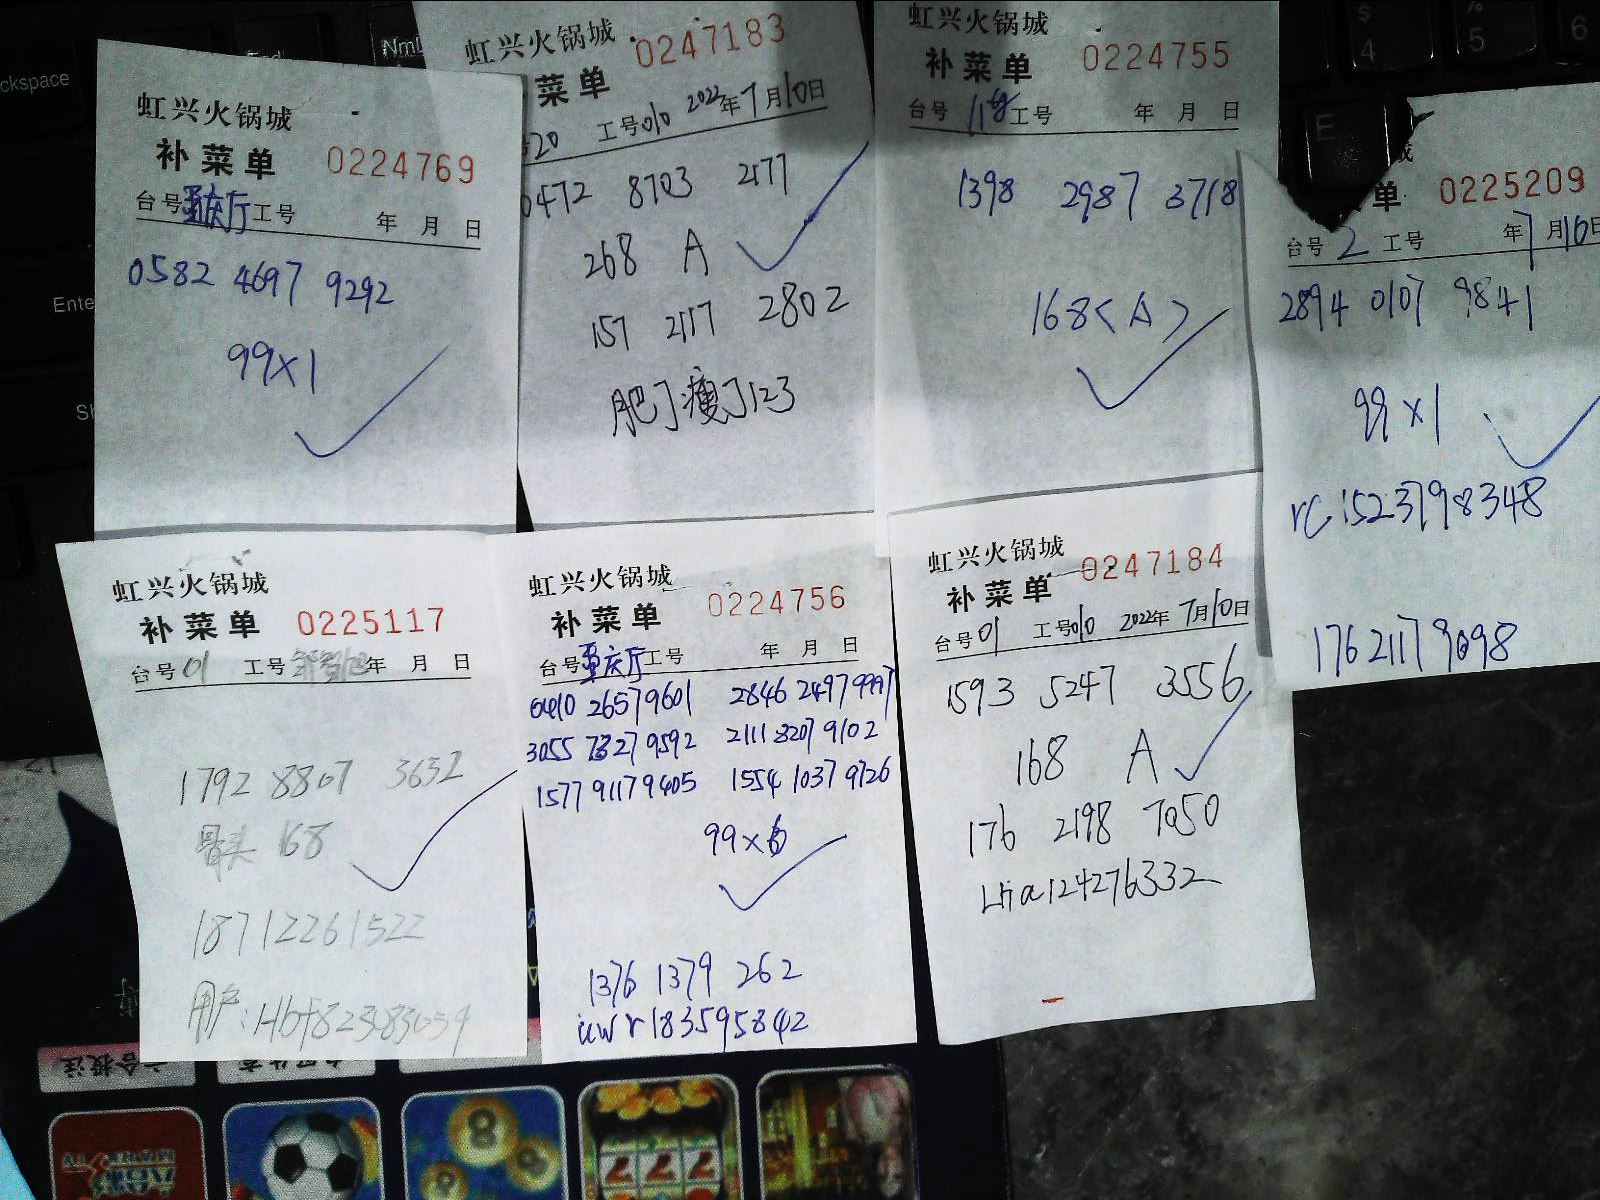 虹兴火锅城
补菜单 0224769
台号重庆厅工号 年 月 日
0582 4697 9292
99×1
虹兴火锅城
菜单 0247183
20 工号010 2022年7月10日
0472 8703 2177
268 A
157 2117 2802
肥了瘦了123
虹兴火锅城
补菜单 0224755
台号 工号 年 月 日
1398 2987 3718
168<A>
城
单 0225209
台号 2 工号 年7月10日
2894 0107 9841
99×1
1762117 9098
虹兴火锅城
补菜单 0225117
台号01 工号 年 月 日
1792 8807 3632
骨头 168
18712261522
用户:Hbf823383659
虹兴火锅城
补菜单 0224756
台号重庆厅工号 年 月 日
0410 2657 9601 2846 2497 9997
3055 7327 9592 2111 8207 9102
1577 9117 9405 1554 1037 9726
99×6
1376 1379 262
uwr183595842
虹兴火锅城
补菜单 0247184
台号01 工号010 2022年7月10日
1593 5247 3556
168 A
176 2198 7050
ckspace
NmL
Ente
$
4
%
5
6
E
六合投注
777